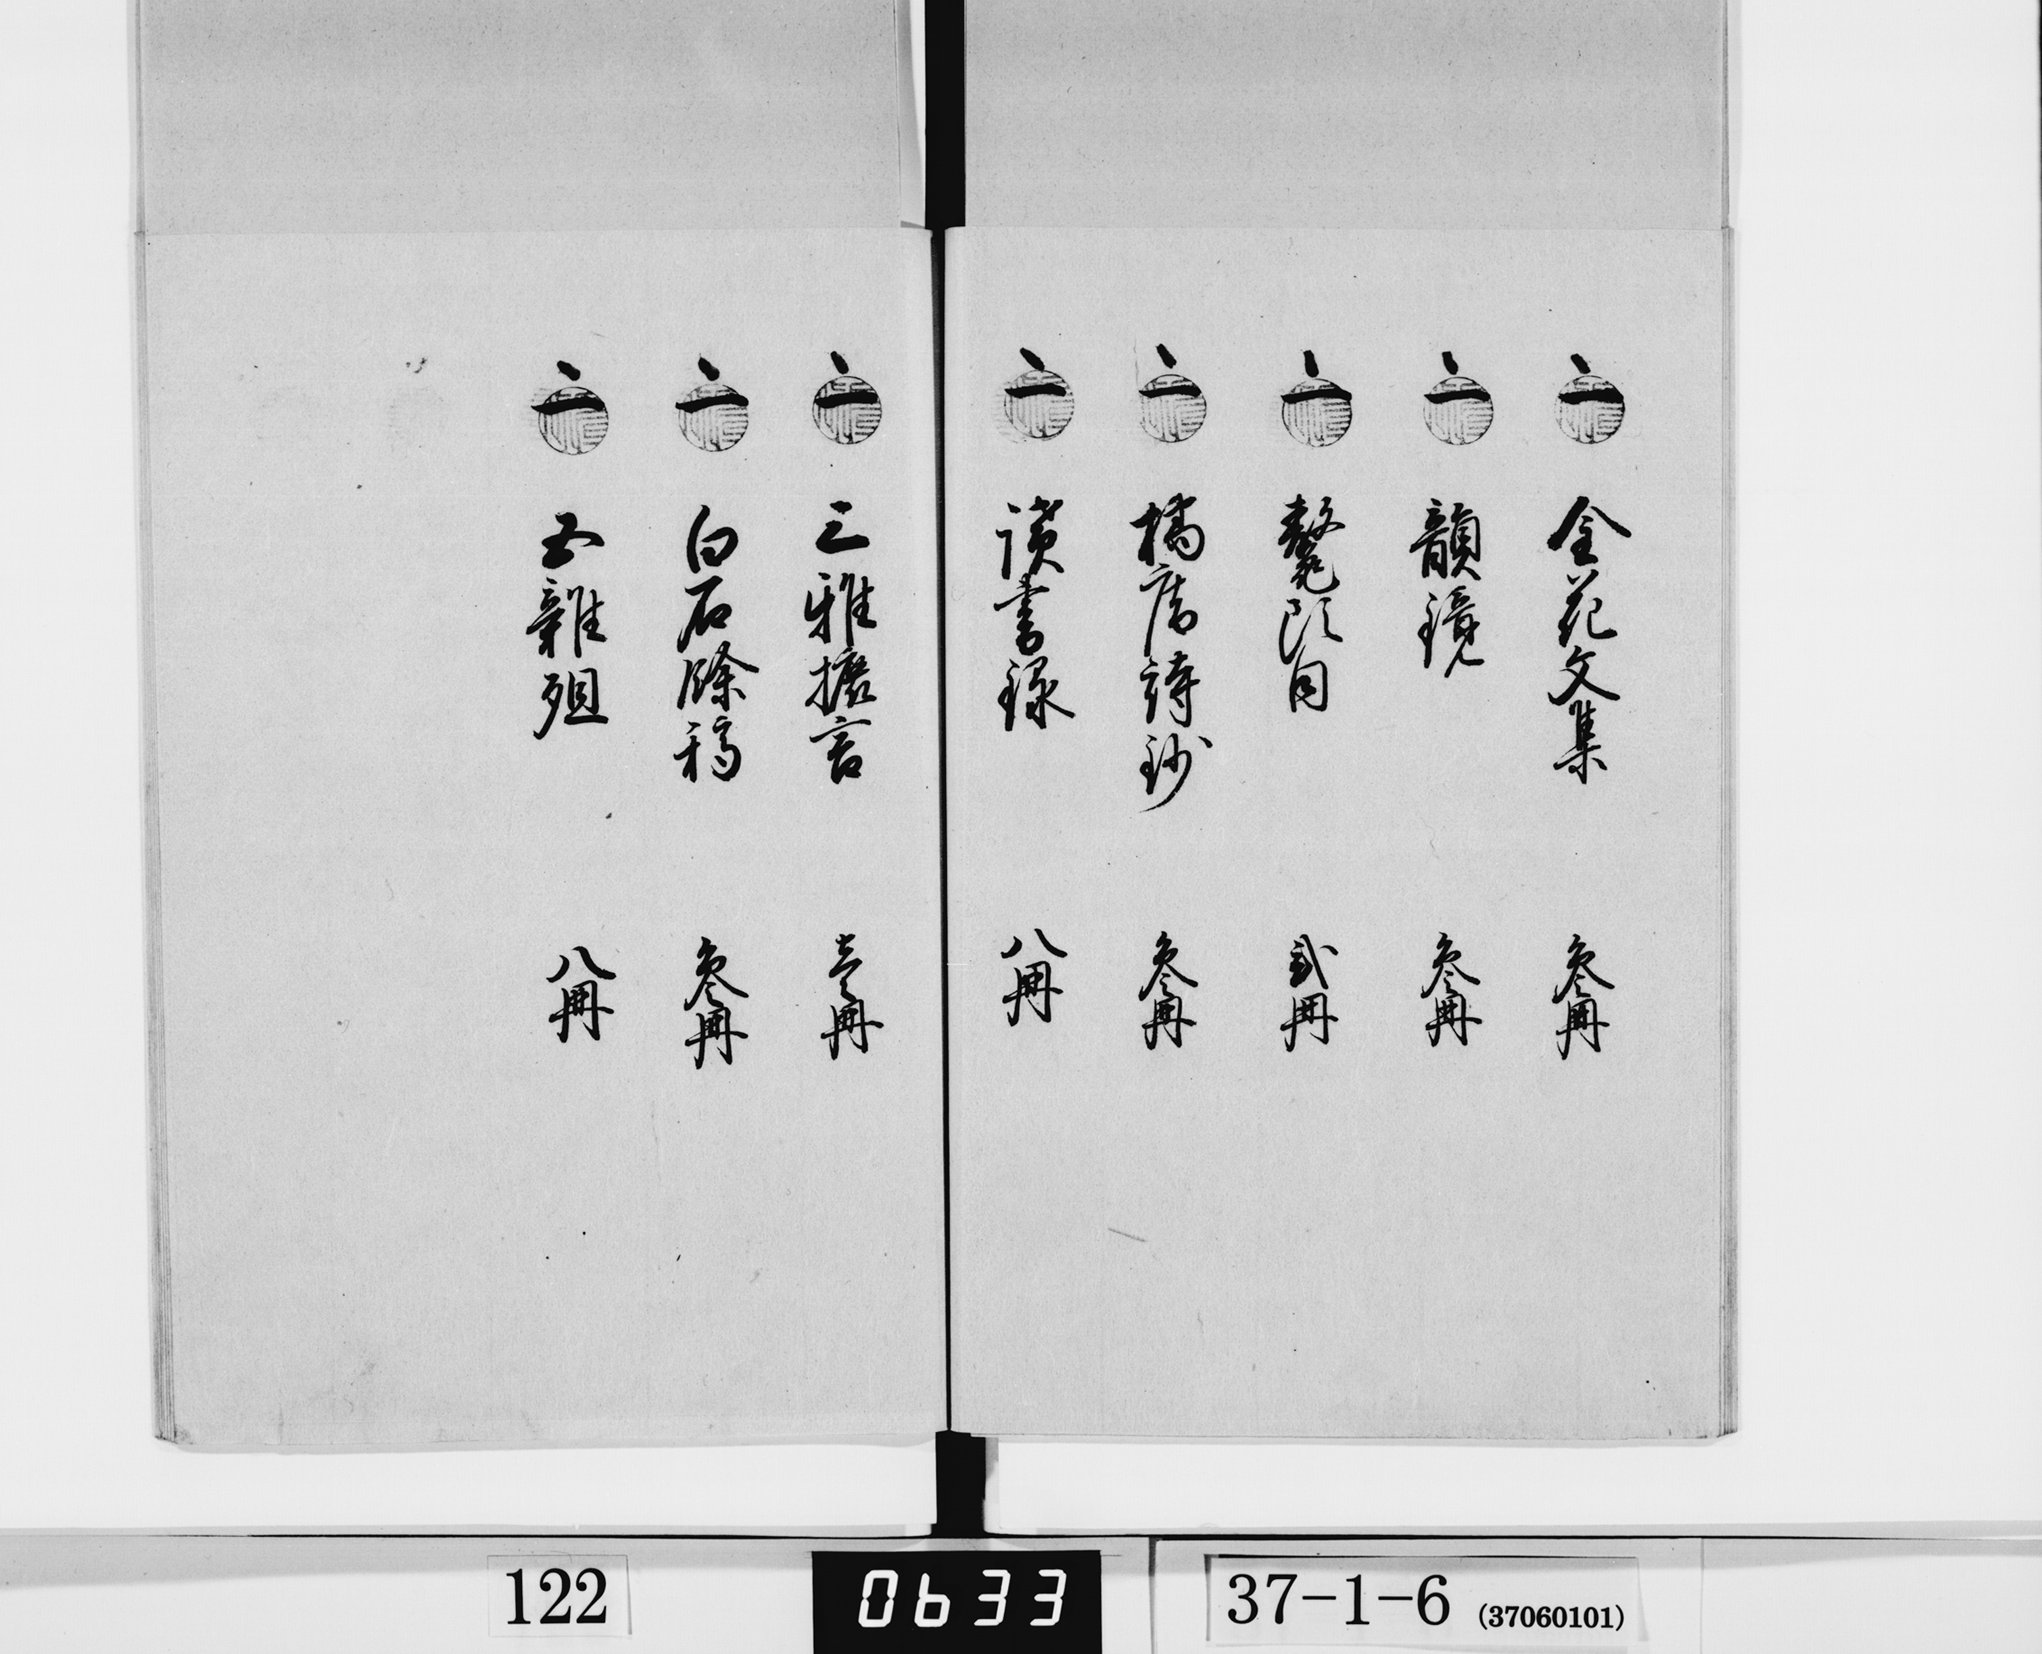 一 金苑文集 参冊
一 韻鏡 参冊
一 鼇頭自 弐冊
一 橘窓詩鈔 参冊
一 讀書録 八冊
一 三雅摭言 壱冊
一 白石餘稿 参冊
一 五雜俎 八冊
122
0633
37-1-6 (37060101)